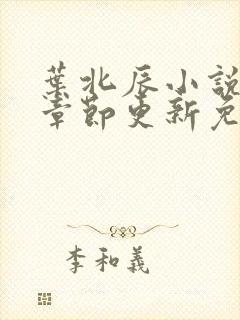 葉北辰小說
章節更新免
李和義